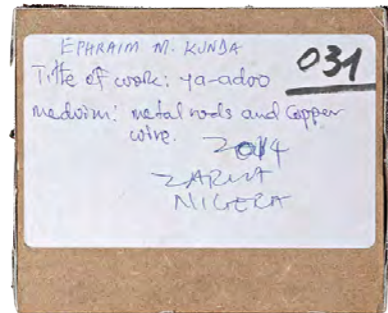 EPHRAIM M. KUNDA
031
Title of work: ya-adoo
medvim: metal rods and Copper
wire.
2014
ZARIA
NIGERA